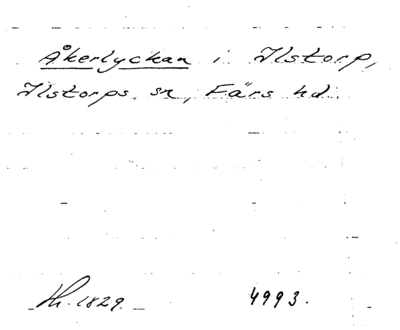 Åkerlyckan i Ilstorp,
Ilstorps sn, Färs hd.
Th. 1829. 4993.